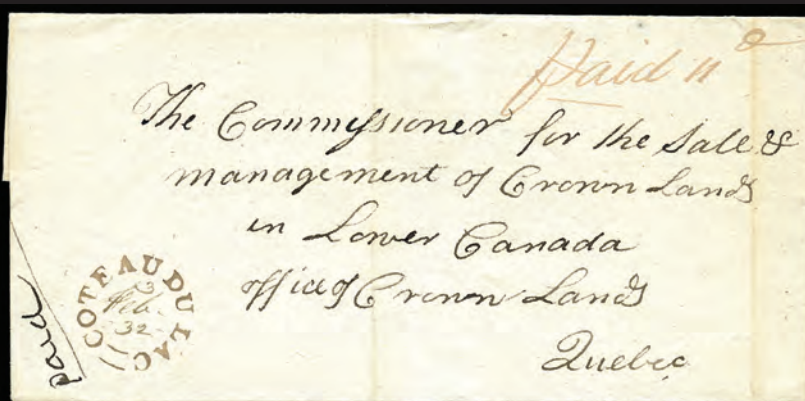 Paid 11 d
The Commissioner for the Sale &
management of Crown Lands
in Lower Canada
office of Crown Lands
Quebec
COTEAU DU LAC
3
Feb.
32
Paid